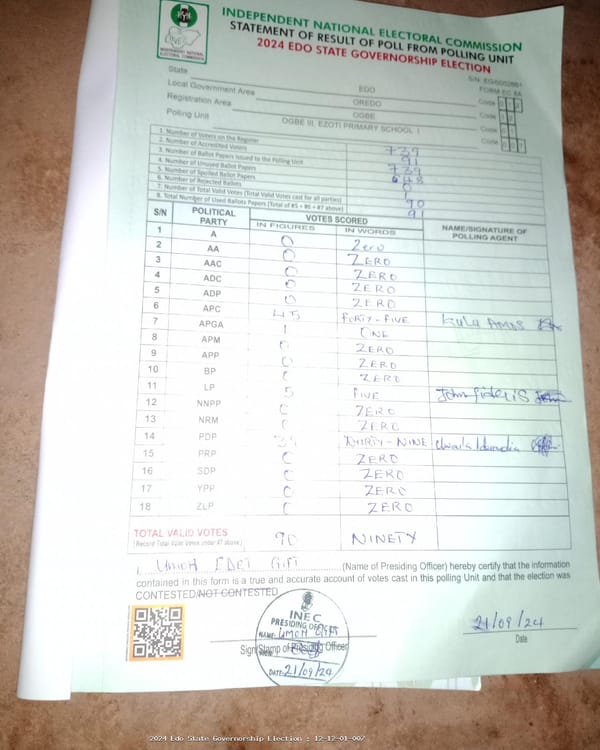 INDEPENDENT NATIONAL ELECTORAL COMMISSION
STATEMENT OF RESULT OF POLL FROM POLLING UNIT
2024 EDO STATE GOVERNORSHIP ELECTION
INEC
INDEPENDENT NATIONAL ELECTORAL COMMISSION
FORM EC 8A
State EDO Code
Local Government Area OREDO Code
Registration Area OGBE Code
Polling Unit OGBE III, EZOTI PRIMARY SCHOOL I Code
1. Number of Voters on the Register 739
2. Number of Accredited Voters 91
3. Number of Ballot Papers Issued to the Polling Unit 739
4. Number of Unused Ballot Papers 648
5. Number of Spoiled Ballot Papers 0
6. Number of Rejected Ballots 1
7. Number of Total Valid Votes (Total Valid Votes cast for all parties) 90
8. Total Number of Used Ballots Papers (Total of #5 + #6 + #7 above) 91
S/N POLITICAL PARTY VOTES SCORED NAME/SIGNATURE OF POLLING AGENT
IN FIGURES IN WORDS
1 A 0 Zero
2 AA 0 ZERO
3 AAC 0 ZERO
4 ADC 0 ZERO
5 ADP 0 ZERO
6 APC 45 FORTY-FIVE
7 APGA 1 ONE
8 APM 0 ZERO
9 APP 0 ZERO
10 BP 0 ZERO
11 LP 5 FIVE John
12 NNPP 0 ZERO
13 NRM 0 ZERO
14 PDP 39 THIRTY-NINE
15 PRP 0 ZERO
16 SDP 0 ZERO
17 YPP 0 ZERO
18 ZLP 0 ZERO
TOTAL VALID VOTES 90 NINETY
(Record Total Valid Votes under #7 above)
I, UMOH EDET GIFT (Name of Presiding Officer) hereby certify that the information
contained in this form is a true and accurate account of votes cast in this polling Unit and that the election was
CONTESTED/NOT CONTESTED
INEC
PRESIDING OFFICER
NAME: UMOH GIFT
Sign/Stamp of Presiding Officer
DATE: 21/09/24
21/09/24
Date
2024 Edo State Governorship Election : 12-12-01-007